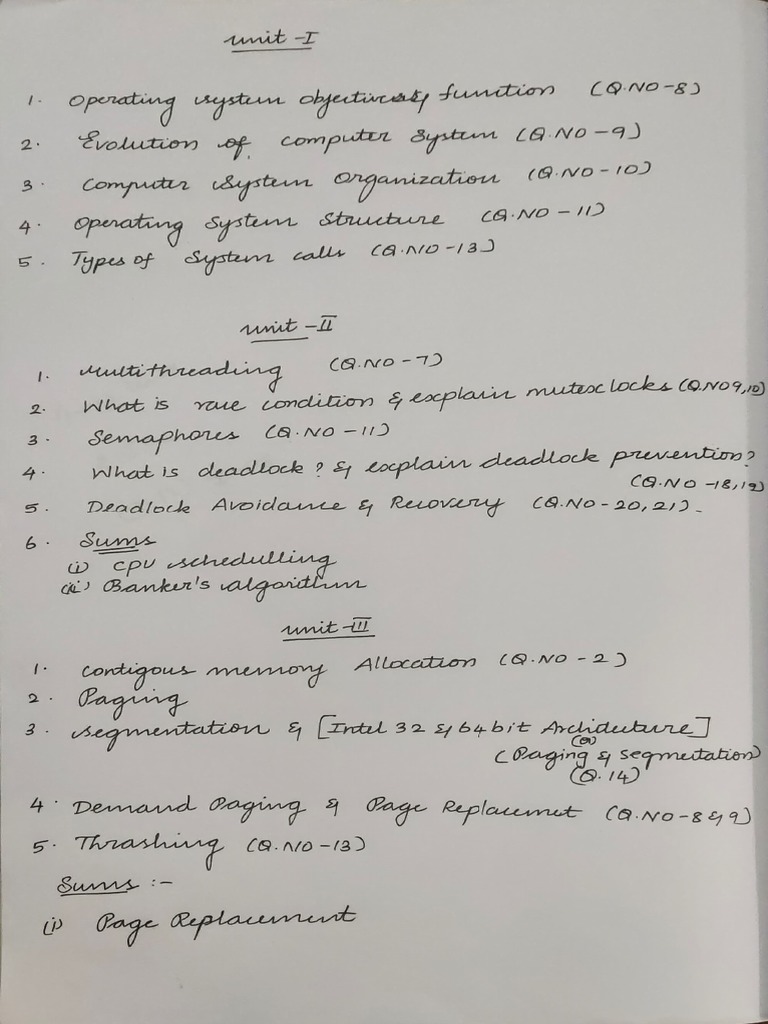 unit - I
1. Operating system objectives & function (Q.NO-8)
2. Evolution of computer system (Q.NO-9)
3. Computer System Organization (Q.NO-10)
4. Operating System Structure (Q.NO-11)
5. Types of System calls (Q.NO-13)
unit - II
1. Multithreading (Q.NO-7)
2. What is race condition & explain mutex locks (Q.NO 9,10)
3. Semaphores (Q.NO-11)
4. What is deadlock? & explain deadlock prevention?
(Q.NO-18,19)
5. Deadlock Avoidance & Recovery (Q.NO-20,21).
6. Sums
(i) CPU schedulling
(ii) Banker's algorithm
unit - III
1. Contigous memory Allocation (Q.NO-2)
2. Paging
3. Segmentation & [Intel 32 & 64 bit Architecture]
(or)
(Paging & segmentation)
(Q.14)
4. Demand Paging & Page Replacemet (Q.NO-8 & 9)
5. Thrashing (Q.NO-13)
Sums :-
(i) Page Replacement